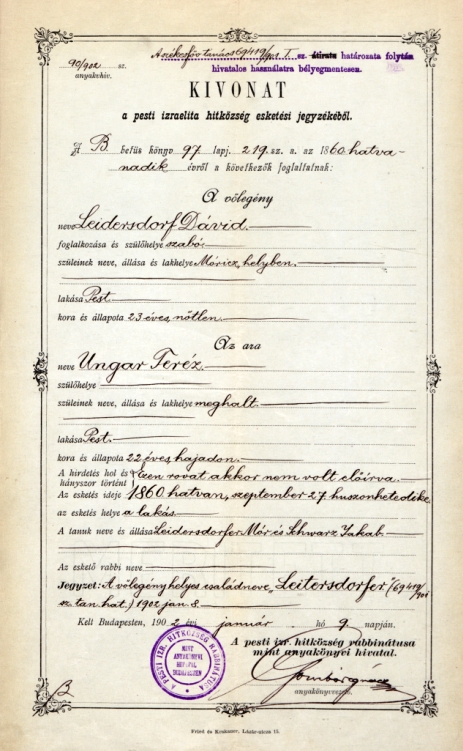 A székesfőv tanács 69419/901 I. sz. átirata határozata folytán
hivatalos használatra bélyegmentesen.
90/902 sz.
anyakvhiv.
KIVONAT
a pesti izraelita hitközség esketési jegyzékéből.
A B betűs könyv 97 lapj. 219 sz. a. az 1860. hatva-
nadik évről a következők foglaltatnak:
A vőlegény
neve Leidersdorf Dávid.
foglalkozása és szülőhelye szabó.
szüleinek neve, állása és lakhelye Móricz, helyben.
lakása Pest.
kora és állapota 23 éves, nőtlen.
Az ara
neve Ungar Teréz.
szülőhelye
szüleinek neve, állása és lakhelye meghalt.
lakása Pest.
kora és állapota 22 éves, hajadon.
A hirdetés hol és Ezen rovat akkor nem volt előirva.
hányszor történt
Az esketés ideje 1860. hatvan, szeptember 27. huszonhetedike
az esketés helye a lakás.
A tanuk neve és állása Leidersdorfer Mór és Schwarz Jakab.
Az eskető rabbi neve
Jegyzet: A vőlegény helyes családneve "Leitersdorfer" (69419/901
sz. tan. hat.) 1902 jan. 8.
Kelt Budapesten, 1902. évi január hó 9. napján.
A pesti izr. hitközség rabbinátusa
mint anyakönyvi hivatal.
anyakönyvvezető.
A PESTI IZR. HITKÖZSÉG RABBINÁTUSA
MINT
ANYAKÖNYVI
HIVATAL
BUDAPESTEN
B